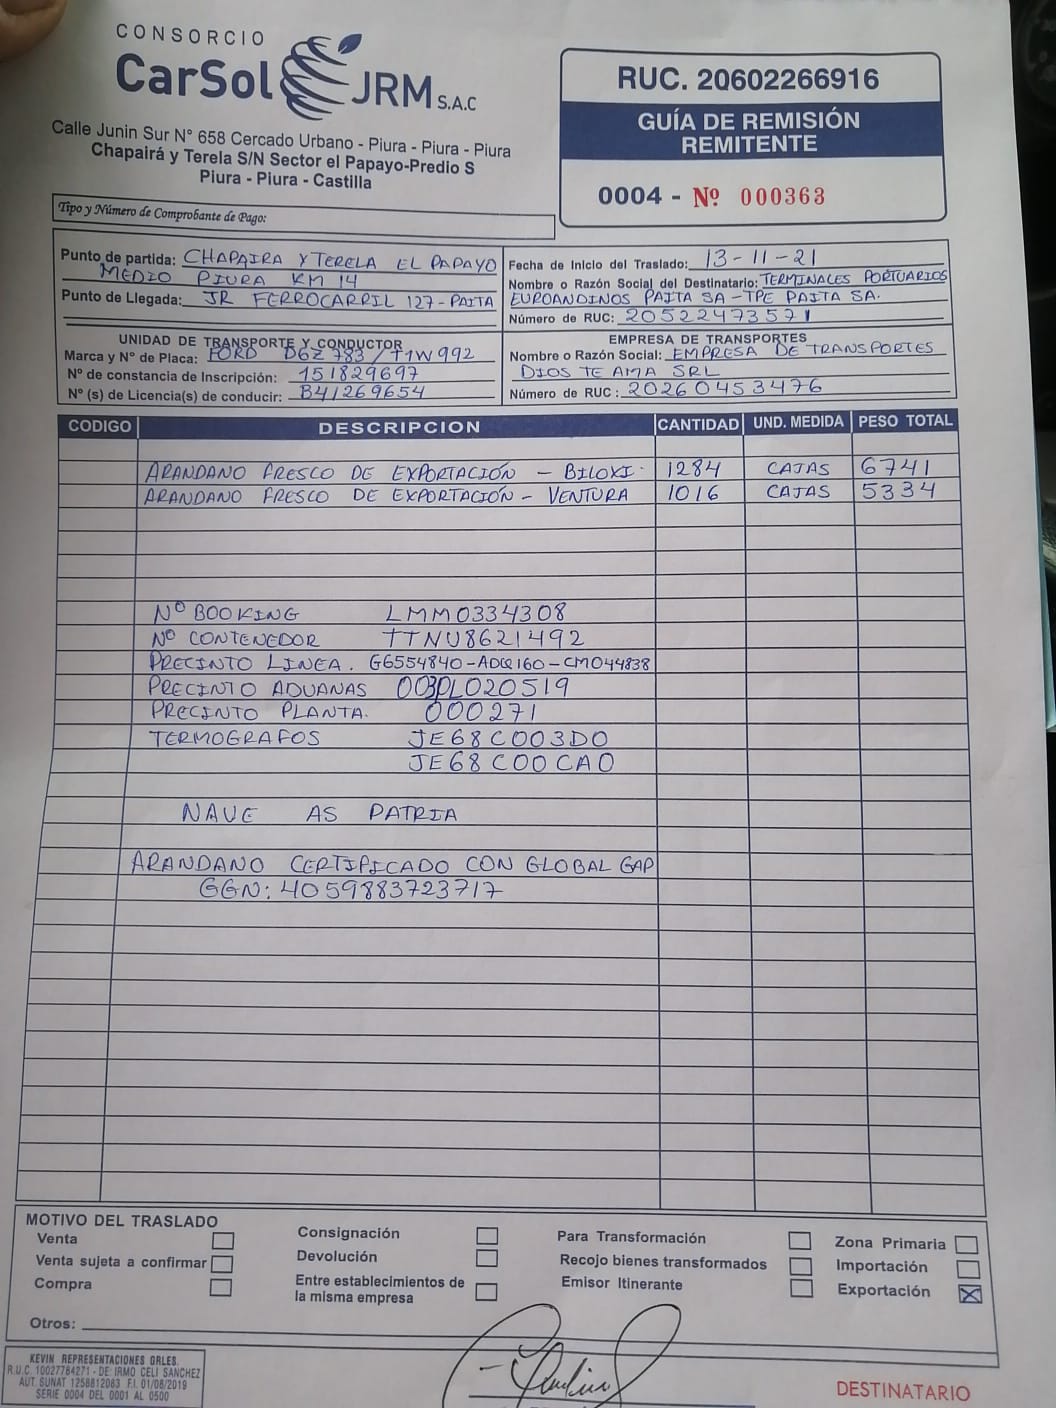 CONSORCIO
CarSol JRM S.A.C
Calle Junin Sur N° 658 Cercado Urbano - Piura - Piura - Piura
Chapairá y Terela S/N Sector el Papayo-Predio S
Piura - Piura - Castilla
RUC. 20602266916
GUÍA DE REMISIÓN
REMITENTE
0004 - Nº 000363
Tipo y Número de Comprobante de Pago:
Punto de partida: CHAPAIRA Y TERELA EL PAPAYO
MEDIO PIURA KM 14
Punto de Llegada: JR FERROCARRIL 127-PAITA
Fecha de Inicio del Traslado: 13-11-21
Nombre o Razón Social del Destinatario: TERMINALES PORTUARIOS
EUROANDINOS PAITA SA-TPE PAITA SA.
Número de RUC: 20522473571
UNIDAD DE TRANSPORTE Y CONDUCTOR
Marca y N° de Placa: FORD D6Z 783 / T1W992
N° de constancia de Inscripción: 151829697
N° (s) de Licencia(s) de conducir: B41269654
EMPRESA DE TRANSPORTES
Nombre o Razón Social: EMPRESA DE TRANSPORTES
DIOS TE AMA SRL
Número de RUC : 20260453476
CODIGO DESCRIPCION CANTIDAD UND. MEDIDA PESO TOTAL
ARANDANO FRESCO DE EXPORTACIÓN - BILOXI. 1284 CAJAS 6741
ARANDANO FRESCO DE EXPORTACIÓN - VENTURA 1016 CAJAS 5334
Nº BOOKING LMM0334308
Nº CONTENEDOR TTNU8621492
PRECINTO LINEA. G6554840-ADQ160-CM044838
PRECINTO ADUANAS 003PL020519
PRECINTO PLANTA. 000271
TERMOGRAFOS JE68C003D0
JE68C00CA0
NAVE AS PATRIA
ARANDANO CERTIFICADO CON GLOBAL GAP
GGN: 4059883723717
MOTIVO DEL TRASLADO
Venta
Venta sujeta a confirmar
Compra
Consignación
Devolución
Entre establecimientos de
la misma empresa
Para Transformación
Recojo bienes transformados
Emisor Itinerante
Zona Primaria
Importación
Exportación
Otros:
KEVIN REPRESENTACIONES GRLES.
R.U.C. 10027784271 - DE: IRMO CELI SANCHEZ
AUT. SUNAT 1258812083 F.I. 01/08/2019
SERIE 0004 DEL 0001 AL 0500
DESTINATARIO